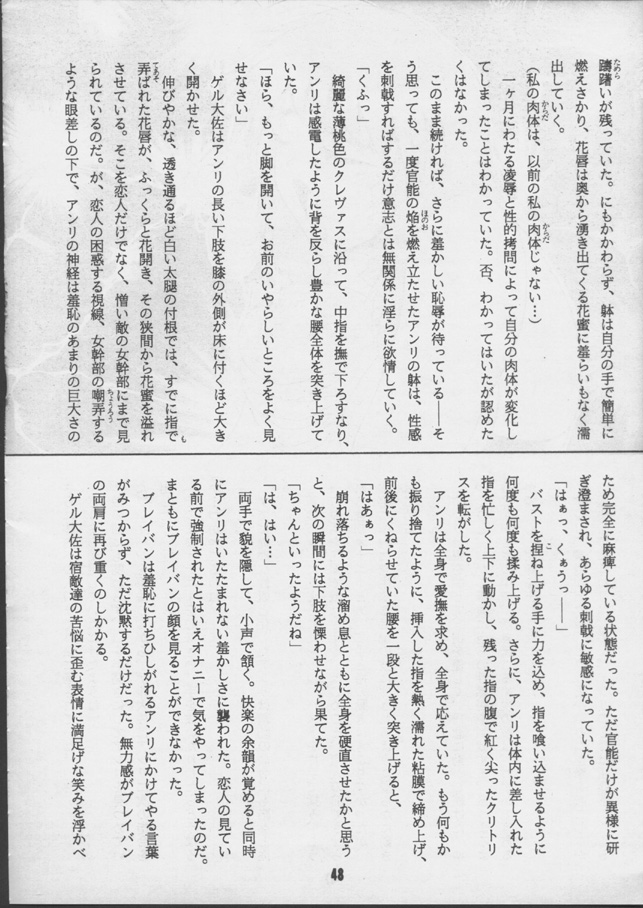 躊躇いが残っていた。にもかかわらず、躰は自分の手で簡単に
燃えさかり、花唇は奥から湧き出てくる花蜜に羞らいもなく濡
出していく。
(私の肉体は、以前の私の肉体じゃない…)
一ヶ月にわたる凌辱と性的拷問によって自分の肉体が変化し
てしまったことはわかっていた。否、わかってはいたが認めた
くはなかった。
このまま続ければ、さらに羞かしい恥辱が待っている――そ
う思っても、一度官能の焔を燃え立たせたアンリの躰は、性感
を刺戟すればするだけ意志とは無関係に淫らに欲情していく。
「くふっ」
綺麗な薄桃色のクレヴァスに沿って、中指を撫で下ろすなり、
アンリは感電したように背を反らし豊かな腰全体を突き上げて
いた。
「ほら、もっと脚を開いて、お前のいやらしいところをよく見
せなさい」
ゲル大佐はアンリの長い下肢を膝の外側が床に付くほど大き
く開かせた。
伸びやかな、透き通るほど白い太腿の付根では、すでに指で
弄ばれた花唇が、ふっくらと花開き、その狭間から花蜜を溢れ
させている。そこを恋人だけでなく、憎い敵の女幹部にまで見
られているのだ。が、恋人の困惑する視線、女幹部の嘲弄する
ような眼差しの下で、アンリの神経は羞恥のあまりの巨大さの
ため完全に麻痺している状態だった。ただ官能だけが異様に研
ぎ澄まされ、あらゆる刺戟に敏感になっていた。
「はぁっ、くぅうっ――」
バストを捏ね上げる手に力を込め、指を喰い込ませるように
何度も何度も揉み上げる。さらに、アンリは体内に差し入れた
指を忙しく上下に動かし、残った指の腹で紅く尖ったクリトリ
スを転がした。
アンリは全身で愛撫を求め、全身で応えていた。もう何もか
も振り捨てたように、挿入した指を熱く濡れた粘膜で締め上げ、
前後にくねらせていた腰を一段と大きく突き上げると、
「はあぁっ」
崩れ落ちるような溜め息とともに全身を硬直させたかと思う
と、次の瞬間には下肢を慄わせながら果てた。
「ちゃんといったようだね」
「は、はい…」
両手で貌を隠して、小声で頷く。快楽の余韻が覚めると同時
にアンリはいたたまれない羞かしさに襲われた。恋人の見てい
る前で強制されたとはいえオナニーで気をやってしまったのだ。
まともにブレイバンの顔を見ることができなかった。
ブレイバンは羞恥に打ちひしがれるアンリにかけてやる言葉
がみつからず、ただ沈黙するだけだった。無力感がブレイバン
の両肩に再び重くのしかかる。
ゲル大佐は宿敵達の苦悩に歪む表情に満足げな笑みを浮かべ
48